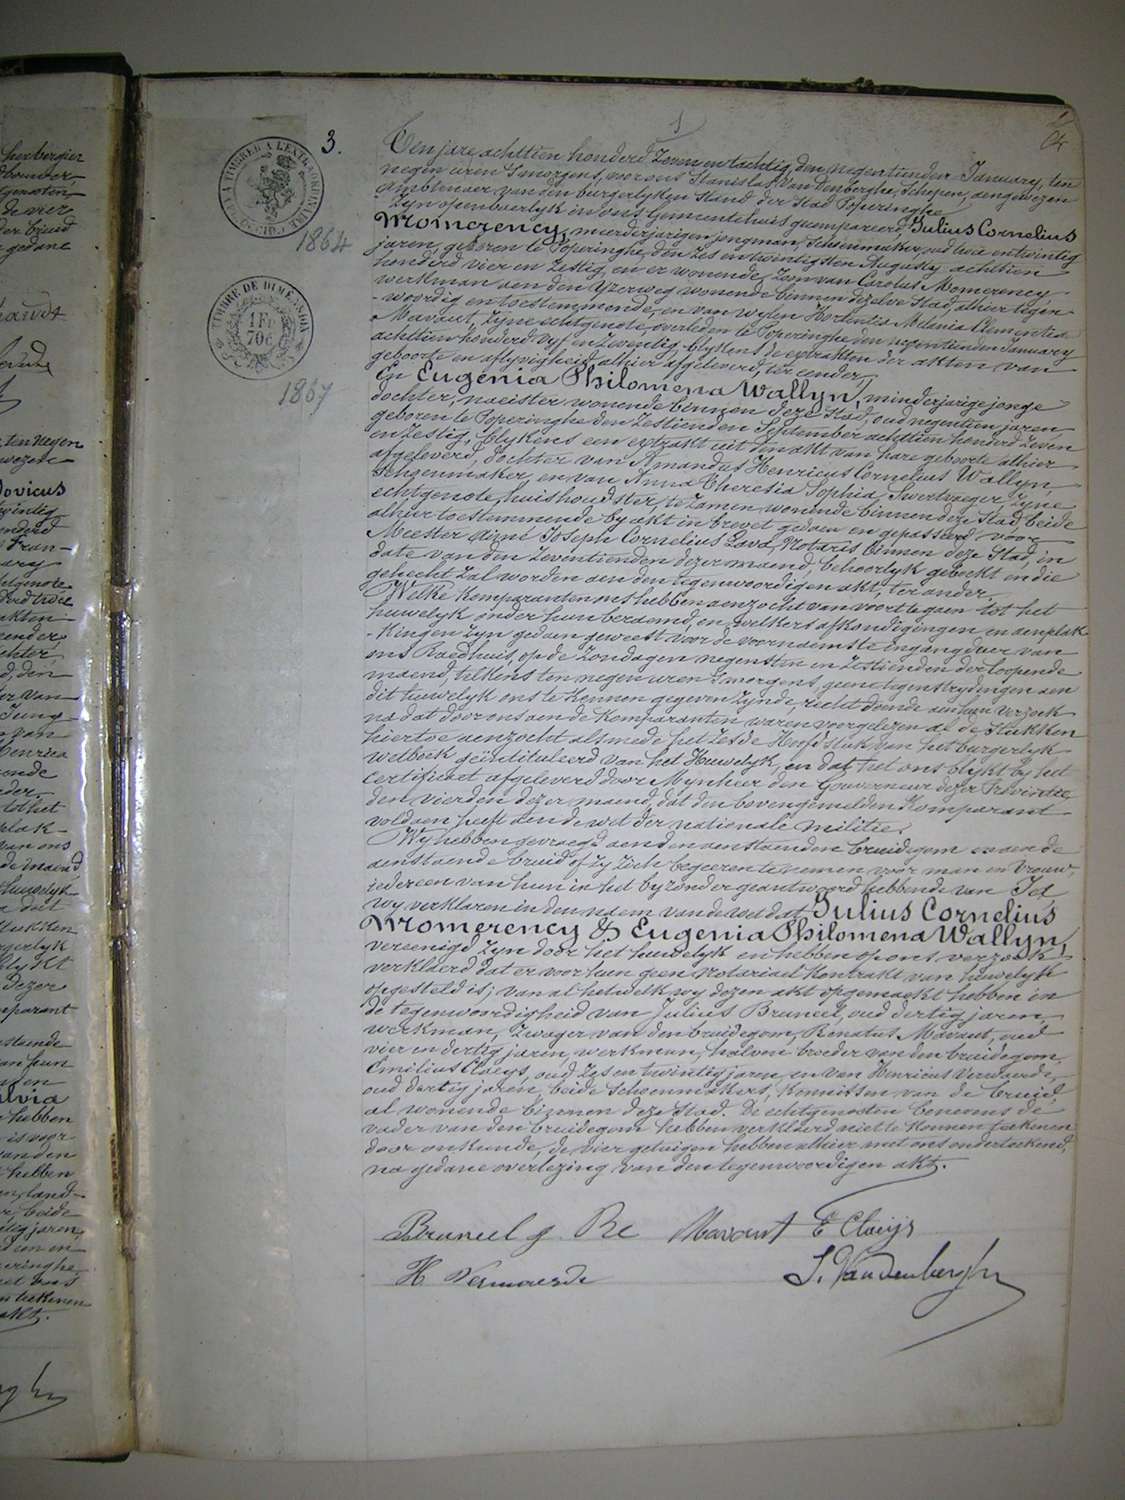 3.
1
A TIMBRER A L'EXTRAORDINAIRE
1864
TIMBRE DE DIMENSION
1 FR
70C
1867
Ten jare achttien honderd Zeven en tachtig, den negentienden January, ten
negen uren s'morgens, voor ons Stanislas Van denberghe, Schepen, aengewezen
ambtenaer van den burgerlyken stand der Stad Poperinghe
Zyn openbaerlyk in ons Gemeentehuis gecompareerd, Julius Cornelius
Vromerency, meerderjarigen jongman, Schoenmaker, oud twee en twintig
jaren, geboren te Poperinghe, den Zes en twintigsten Augusty achttien
honderd vier en Zestig, en er wonende, Zoon van Carolus Momerency
werkman aen den Yzerweg wonende binnen dezelve Stad, alhier tegen-
-woordig en toestemmende, en van wylen Hortentia Melania Clementia
Mavaut, Zyne echtgenote, overleden te Poperinghe den negentienden January
achttien honderd vyf en Zeventig, blykens de extrakten der akten van
geboorte en aflyvigheid alhier afgeleverd, ter eender,
En Eugenia Philomena Wallyn, minderjarige jonge
dochter, naeister wonende binnen deze Stad, oud negentien jaren,
geboren te Poperinghe den Zestienden September achttien honderd Zeven
en Zestig, blykens een extrakt uit den akt van hare geboorte alhier
afgeleverd, dochter van Amandus Henricus Cornelius Wallyn,
Schoenmaker, en van Anna Theresia Sophia Swertvaeger Zyne
echtgenote, huishoudster, te Zamen wonende binnen deze Stad, beide
alhier toestemmende by akt in brevet gedaen en gepasseerd voor
Meester Aimé Joseph Cornelius Lava, Notaris binnen deze Stad, in
date van den Zeventienden dezer maend, behoorlyk geboekt en die
gehecht zal worden aen den tegenwoordigen akt, ter ander.
Welke Komparanten ons hebben aenzocht van voort te gaen tot het
huwelyk onder hun beraemd, en welkers afkondigingen en aenplak-
-kingen Zyn gedaen geweest voor de voornaemste ingangdeur van
ons Raedhuis, op de Zondagen negensten en Zestienden der loopende
maend, telkens ten negen uren s'morgens, geene tegenstrydingen aen
dit huwelyk ons te kennen gegeven Zynde, recht doende aen hun verzoek
na dat door ons aen de Komparanten waren voorgelezen al de Stukken
hiertoe aenzocht alsmede het Zesde Hoofdstuk van het burgerlyk
wetboek geïntituleerd van het Huwelyk, en dat het ons blykt by het
Certificaet afgeleverd door Mynheer den Gouverneur dezer Provintie
den vierden dezer maend, dat den bovengemelden Komparant
voldaen heeft aen de wet der nationale militie.
Wy hebben gevraegd aen den aenstaenden bruidegom en aen de
aenstaende bruid of zy zich begeeren te nemen voor man en vrouw,
iedereen van hun in het byzonder geantwoord hebbende van Ja,
wy verklaren in den naem van de wet dat Julius Cornelius
Vromerency & Eugenia Philomena Wallyn,
vereenigd Zyn door het huwelyk en hebben op ons verzoek
verklaerd dat er voor hun geen Notariael Kontrakt van huwelyk
opgesteld is; van al hetwelk wy dezen akt opgemaekt hebben in
de tegenwoordigheid van Julius Bruneel, oud dertig jaren,
werkman, Zwager van den bruidegom, Renatus Mavaut, oud
vier en dertig jaren, werkman, halven broeder van den bruidegom,
Emilius Claeys, oud Zes en twintig jaren, en van Henricus Vermaerde,
oud dertig jaren, beide Schoenmakers, Kennissen van de bruid,
al wonende binnen deze Stad. De echtgenoten benevens de
vader van den bruidegom hebben verklaerd niet te konnen teekenen
door onkunde, de vier getuigen hebben alhier met ons onderteekend,
na gedane overlezing van den tegenwoordigen akt.
Bruneel g Re Mavaut E Claeijs
H Vermaerde S. Vandenberghe